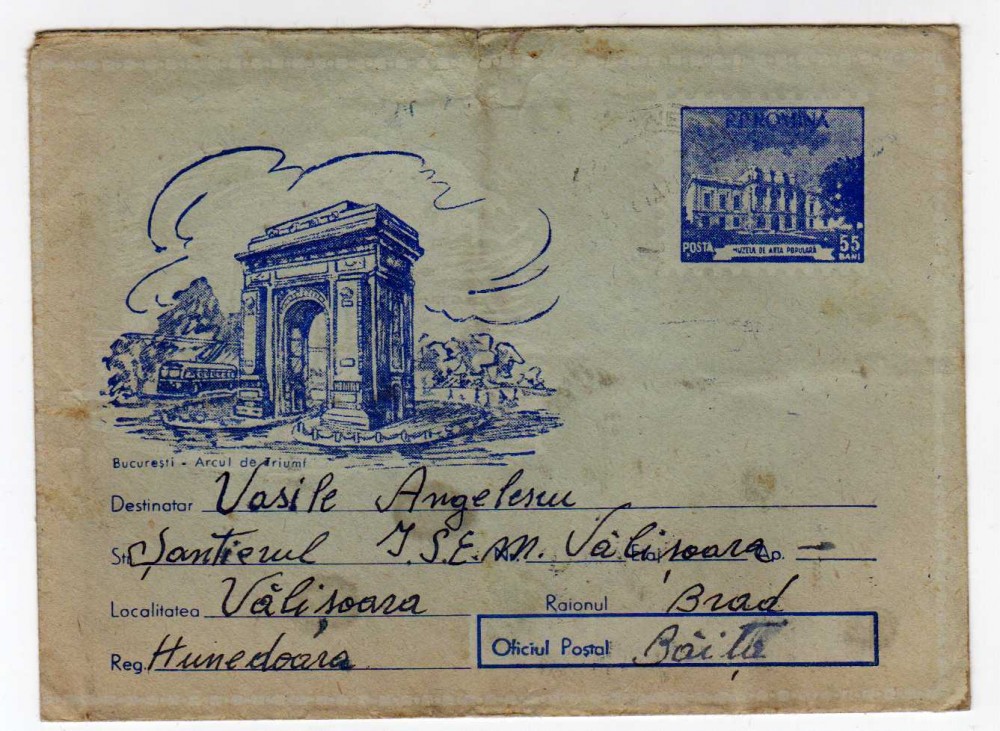 R.P. ROMINA
POSTA MUZEUL DE ARTA POPULARĂ 55 BANI
București - Arcul de Triumf
Destinatar Vasile Angelescu
Str. Șantierul I.S.E.M. Nr. Vălișoara Etaj Ap. —
Localitatea Vălișoara Raionul Brad
Reg. Hunedoara Oficiul Poștal Băița